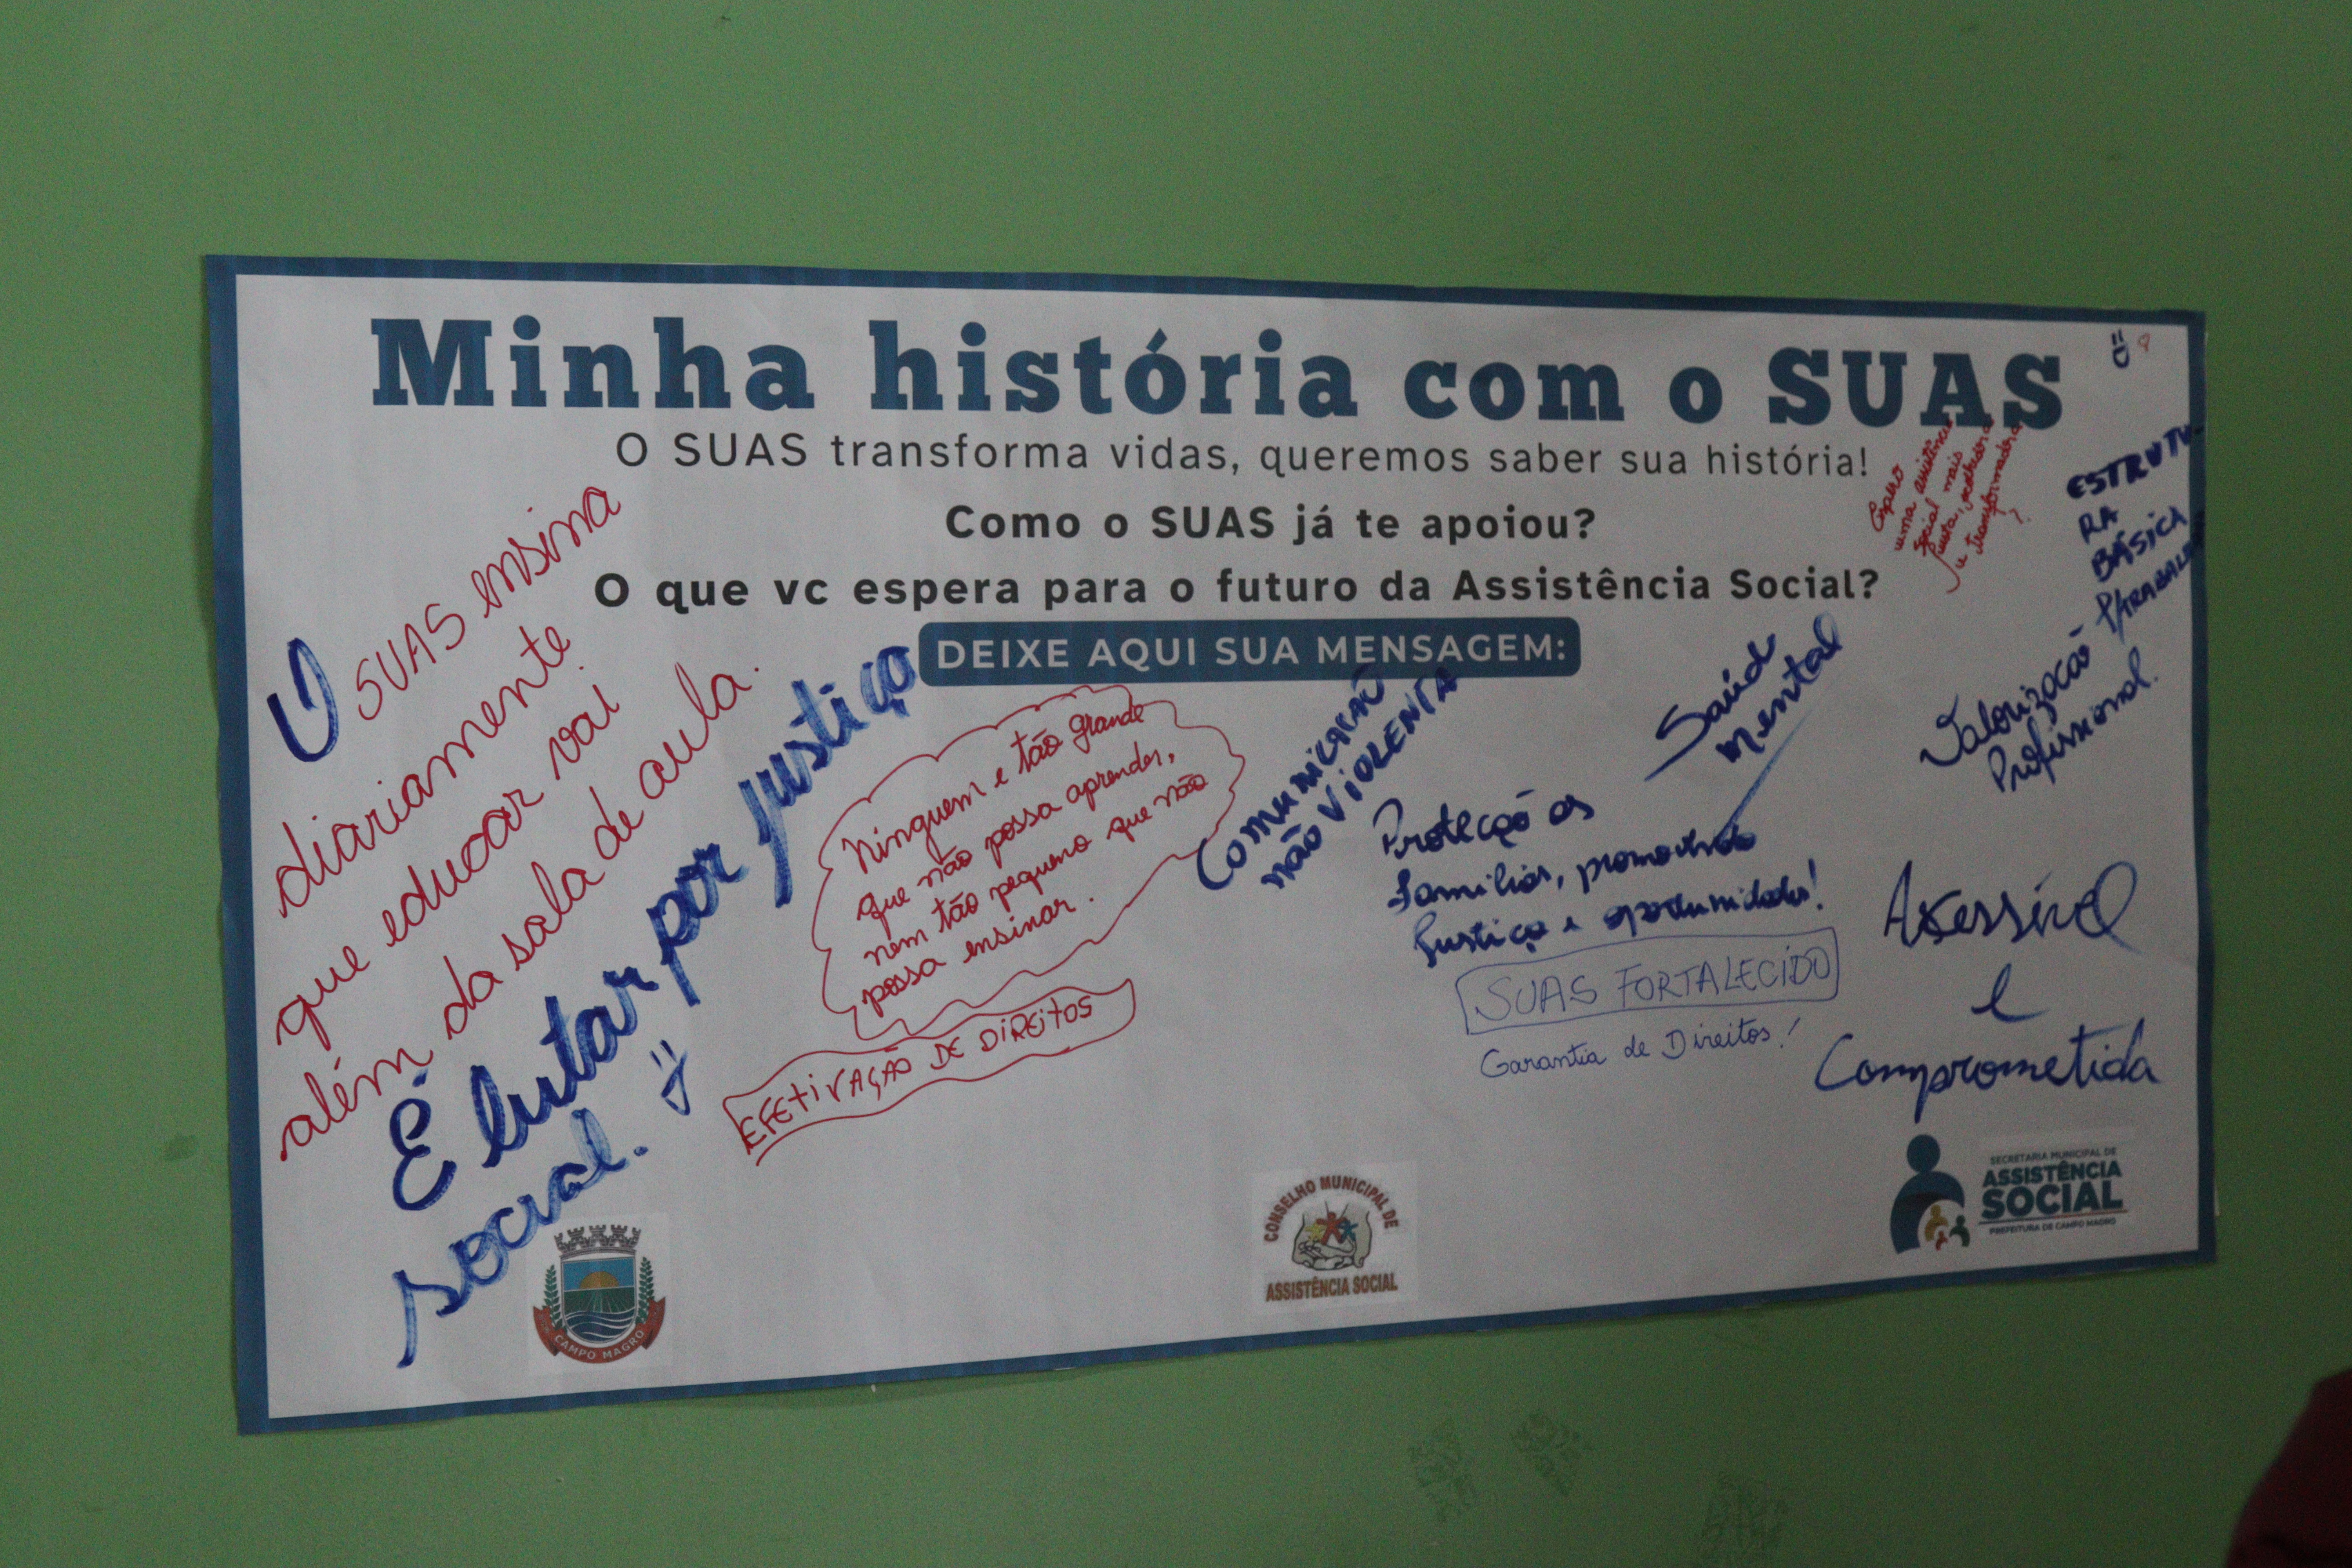 Minha história com o SUAS
O SUAS transforma vidas, queremos saber sua história!
Como o SUAS já te apoiou?
O que vc espera para o futuro da Assistência Social?
DEIXE AQUI SUA MENSAGEM:
O SUAS ensina
diariamente
que educar vai
além da sala de aula.
É lutar por justiça
social.
Ninguem e tão grande
que não possa aprender,
nem tão pequeno que não
possa ensinar.
EFETIVAÇÃO DE DIREITOS
COMUNICAÇÃO
NÃO VIOLENTA
Proteção as
famílias, promovendo
justiça e oportunidades!
SUAS FORTALECIDO
Garantia de Direitos!
Saúd
mental
uma assistência
social mais
justa,
e transformadora
ESTRUTU-
RA
BÁSICA
P/TRABALH
Valorização
Profissional.
Acessível
e
Comprometida
CAMPO MAGRO
CONSELHO MUNICIPAL DE
ASSISTÊNCIA SOCIAL
SECRETARIA MUNICIPAL DE
ASSISTÊNCIA
SOCIAL
PREFEITURA DE CAMPO MAGRO